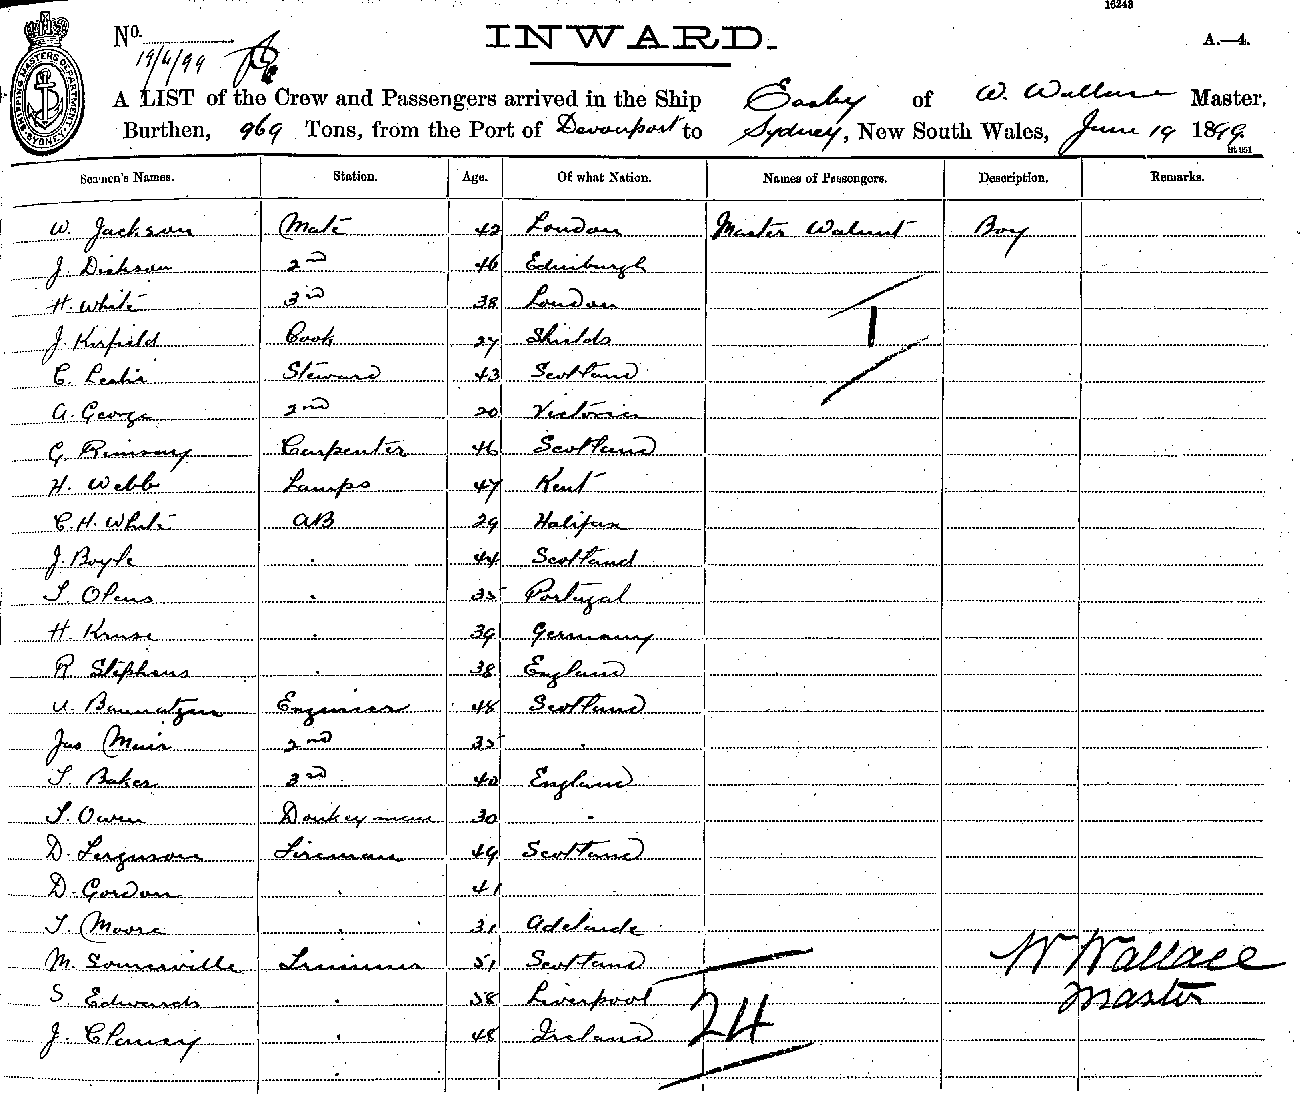 16243
No.
INWARD.
A.—4.
19/6/99
A LIST of the Crew and Passengers arrived in the Ship Easby of W. Wallace Master,
Burthen, 969 Tons, from the Port of Devonport to Sydney, New South Wales, June 19 1899.
Seamen's Names. Station. Age. Of what Nation. Names of Passengers. Description. Remarks.
W. Jackson Mate 42 London Master Walnut Boy
J. Dickson 2nd 46 Edinburgh
H. White 3rd 38 London
1
J. Kirfield Cook 27 Shields
C. Leslie Steward 43 Scotland
A. George 2nd 20 Victoria
G Rimsay Carpenter 46 Scotland
H. Webb Lamps 47 Kent
C. H. White AB 29 Halifax
J. Boyle . 44 Scotland
T. Olens . 35 Portugal
H Kruse . 39 Germany
R. Stephens . 38 England
Engineer 48 Scotland
Jas Muir 2nd 35 .
T. Baker 3rd 40 England
T. Owen Donkeyman 30 .
D. Ferguson Fireman 49 Scotland
D. Gordon . 41
T. Moore . 31 Adelaide
M. Somerville Trimmer 51 Scotland
W Wallace
S Edwards . 58 Liverpool
Master
24
J. Clancy . 48 Ireland
.